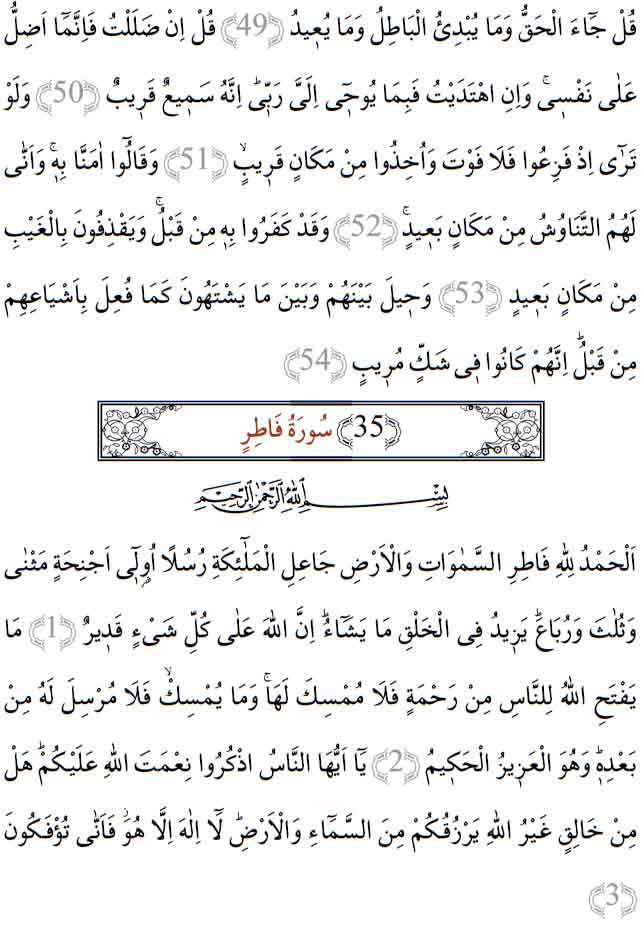 قُلْ جَٓاءَ الْحَقُّ وَمَا يُبْدِئُ الْبَاطِلُ وَمَا يُع۪يدُ ﴿49﴾ قُلْ اِنْ ضَلَلْتُ فَاِنَّمَٓا اَضِلُّ
عَلٰى نَفْس۪يۚ وَاِنِ اهْتَدَيْتُ فَبِمَا يُوح۪ٓى اِلَيَّ رَبّ۪يۜ اِنَّهُ سَم۪يعٌ قَر۪يبٌ ﴿50﴾ وَلَوْ
تَرٰٓى اِذْ فَزِعُوا فَلَا فَوْتَ وَاُخِذُوا مِنْ مَكَانٍ قَر۪يبٍۙ ﴿51﴾ وَقَالُٓوا اٰمَنَّا بِه۪ۚ وَاَنّٰى
لَهُمُ التَّنَاوُشُ مِنْ مَكَانٍ بَع۪يدٍۚ ﴿52﴾ وَقَدْ كَفَرُوا بِه۪ مِنْ قَبْلُۚ وَيَقْذِفُونَ بِالْغَيْبِ
مِنْ مَكَانٍ بَع۪يدٍ ﴿53﴾ وَح۪يلَ بَيْنَهُمْ وَبَيْنَ مَا يَشْتَهُونَ كَمَا فُعِلَ بِاَشْيَاعِهِمْ
مِنْ قَبْلُۜ اِنَّهُمْ كَانُوا ف۪ي شَكٍّ مُر۪يبٍ ﴿54﴾
﴿35﴾ سُورَةُ فَاطِرٍ
بِسْمِ اللّٰهِ الرَّحْمٰنِ الرَّح۪يمِ
اَلْحَمْدُ لِلّٰهِ فَاطِرِ السَّمٰوَاتِ وَالْاَرْضِ جَاعِلِ الْمَلٰٓئِكَةِ رُسُلًا اُو۬ل۪ٓي اَجْنِحَةٍ مَثْنٰى
وَثُلٰثَ وَرُبَاعَۜ يَز۪يدُ فِي الْخَلْقِ مَا يَشَٓاءُۜ اِنَّ اللّٰهَ عَلٰى كُلِّ شَيْءٍ قَد۪يرٌ ﴿1﴾ مَا
يَفْتَحِ اللّٰهُ لِلنَّاسِ مِنْ رَحْمَةٍ فَلَا مُمْسِكَ لَهَاۚ وَمَا يُمْسِكْۙ فَلَا مُرْسِلَ لَهُ مِنْ
بَعْدِه۪ۜ وَهُوَ الْعَز۪يزُ الْحَك۪يمُ ﴿2﴾ يَٓا اَيُّهَا النَّاسُ اذْكُرُوا نِعْمَتَ اللّٰهِ عَلَيْكُمْۜ هَلْ
مِنْ خَالِقٍ غَيْرُ اللّٰهِ يَرْزُقُكُمْ مِنَ السَّمَٓاءِ وَالْاَرْضِۜ لَٓا اِلٰهَ اِلَّا هُوَۘ فَاَنّٰى تُؤْفَكُونَ
﴿3﴾